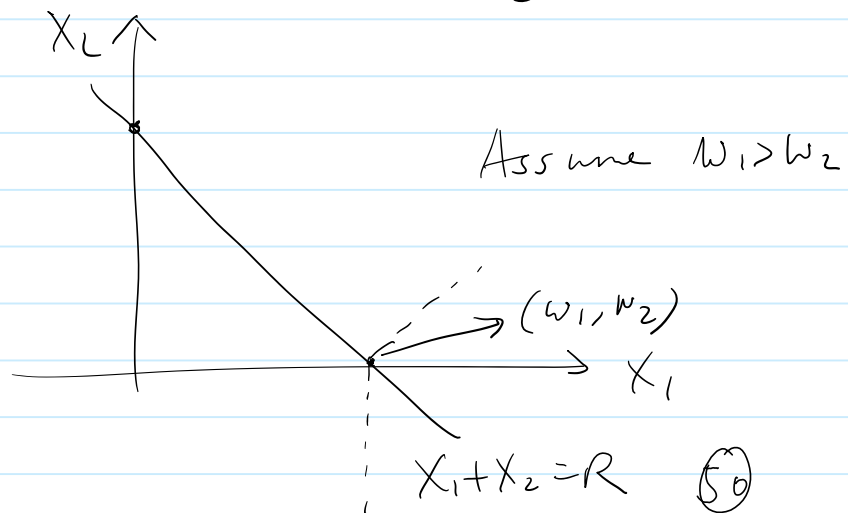 X2
Assume W1>W2
(w1,w2)
X1
X1+X2=R 50